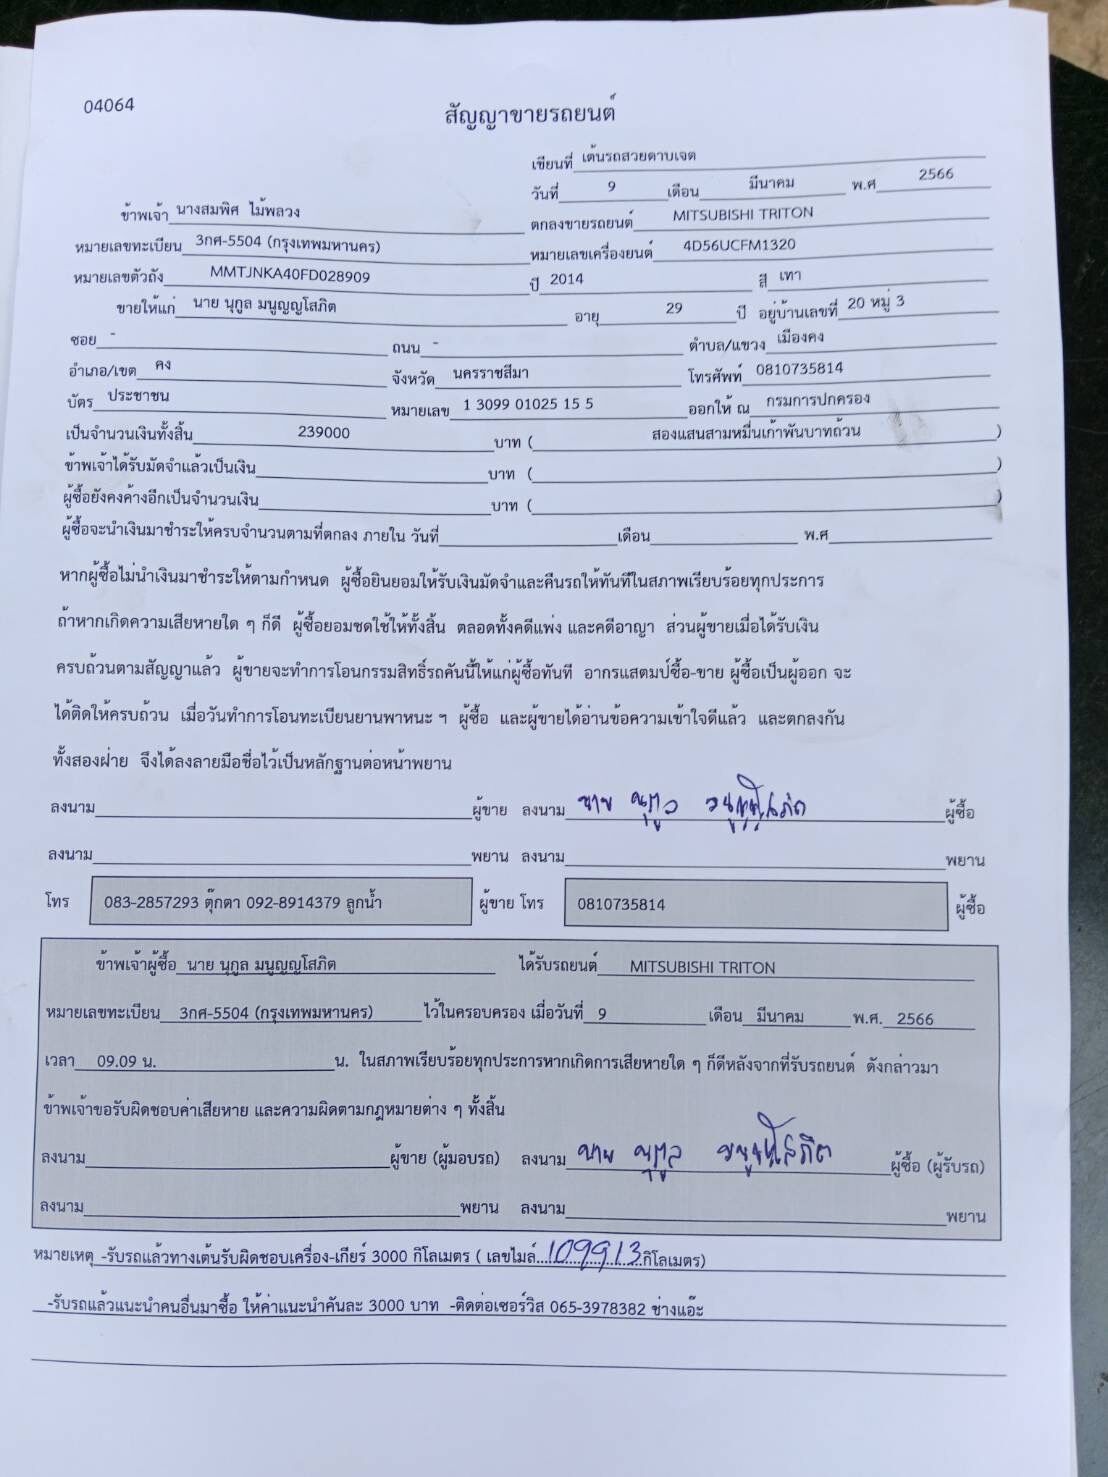 04064
สัญญาขายรถยนต์
เขียนที่ เต้นรถสวยดาบเจต
วันที่ 9 เดือน มีนาคม พ.ศ 2566
ข้าพเจ้า นางสมพิศ ไม้พลวง ตกลงขายรถยนต์ MITSUBISHI TRITON
หมายเลขทะเบียน 3กศ-5504 (กรุงเทพมหานคร) หมายเลขเครื่องยนต์ 4D56UCFM1320
หมายเลขตัวถัง MMTJNKA40FD028909 ปี 2014 สี เทา
ขายให้แก่ นาย นุกูล มนูญญโสภิต อายุ 29 ปี อยู่บ้านเลขที่ 20 หมู่ 3
ซอย - ถนน - ตำบล/แขวง เมืองคง
อำเภอ/เขต คง จังหวัด นครราชสีมา โทรศัพท์ 0810735814
บัตร ประชาชน หมายเลข 1 3099 01025 15 5 ออกให้ ณ กรมการปกครอง
เป็นจำนวนเงินทั้งสิ้น 239000 บาท ( สองแสนสามหมื่นเก้าพันบาทถ้วน )
ข้าพเจ้าได้รับมัดจำแล้วเป็นเงิน บาท ( )
ผู้ซื้อยังคงค้างอีกเป็นจำนวนเงิน บาท ( )
ผู้ซื้อจะนำเงินมาชำระให้ครบจำนวนตามที่ตกลง ภายใน วันที่ เดือน พ.ศ
หากผู้ซื้อไม่นำเงินมาชำระให้ตามกำหนด ผู้ซื้อยินยอมให้รับเงินมัดจำและคืนรถให้ทันทีในสภาพเรียบร้อยทุกประการ
ถ้าหากเกิดความเสียหายใด ๆ ก็ดี ผู้ซื้อยอมชดใช้ให้ทั้งสิ้น ตลอดทั้งคดีแพ่ง และคดีอาญา ส่วนผู้ขายเมื่อได้รับเงิน
ครบถ้วนตามสัญญาแล้ว ผู้ขายจะทำการโอนกรรมสิทธิ์รถคันนี้ให้แก่ผู้ซื้อทันที อากรแสตมป์ซื้อ-ขาย ผู้ซื้อเป็นผู้ออก จะ
ได้ติดให้ครบถ้วน เมื่อวันทำการโอนทะเบียนยานพาหนะ ฯ ผู้ซื้อ และผู้ขายได้อ่านข้อความเข้าใจดีแล้ว และตกลงกัน
ทั้งสองฝ่าย จึงได้ลงลายมือชื่อไว้เป็นหลักฐานต่อหน้าพยาน
ลงนาม ผู้ขาย ลงนาม นาย นุกูล มนูญญโสภิต ผู้ซื้อ
ลงนาม พยาน ลงนาม พยาน
โทร 083-2857293 ตุ๊กตา 092-8914379 ลูกน้ำ ผู้ขาย โทร 0810735814 ผู้ซื้อ
ข้าพเจ้าผู้ซื้อ นาย นุกูล มนูญญโสภิต ได้รับรถยนต์ MITSUBISHI TRITON
หมายเลขทะเบียน 3กศ-5504 (กรุงเทพมหานคร) ไว้ในครอบครอง เมื่อวันที่ 9 เดือน มีนาคม พ.ศ. 2566
เวลา 09.09 น. น. ในสภาพเรียบร้อยทุกประการหากเกิดการเสียหายใด ๆ ก็ดีหลังจากที่รับรถยนต์ ดังกล่าวมา
ข้าพเจ้าขอรับผิดชอบค่าเสียหาย และความผิดตามกฎหมายต่าง ๆ ทั้งสิ้น
ลงนาม ผู้ขาย (ผู้มอบรถ) ลงนาม นาย นุกูล มนูญญโสภิต ผู้ซื้อ (ผู้รับรถ)
ลงนาม พยาน ลงนาม พยาน
หมายเหตุ -รับรถแล้วทางเต้นรับผิดชอบเครื่อง-เกียร์ 3000 กิโลเมตร ( เลขไมล์ 109913 กิโลเมตร)
-รับรถแล้วแนะนำคนอื่นมาซื้อ ให้ค่าแนะนำคันละ 3000 บาท -ติดต่อเซอร์วิส 065-3978382 ช่างแอ๊ะ